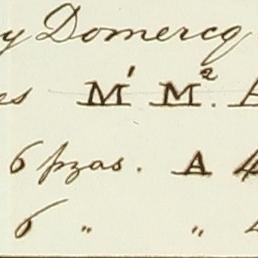 y Domercq
es M¹ M².
6 pzas. A 4
6 " "